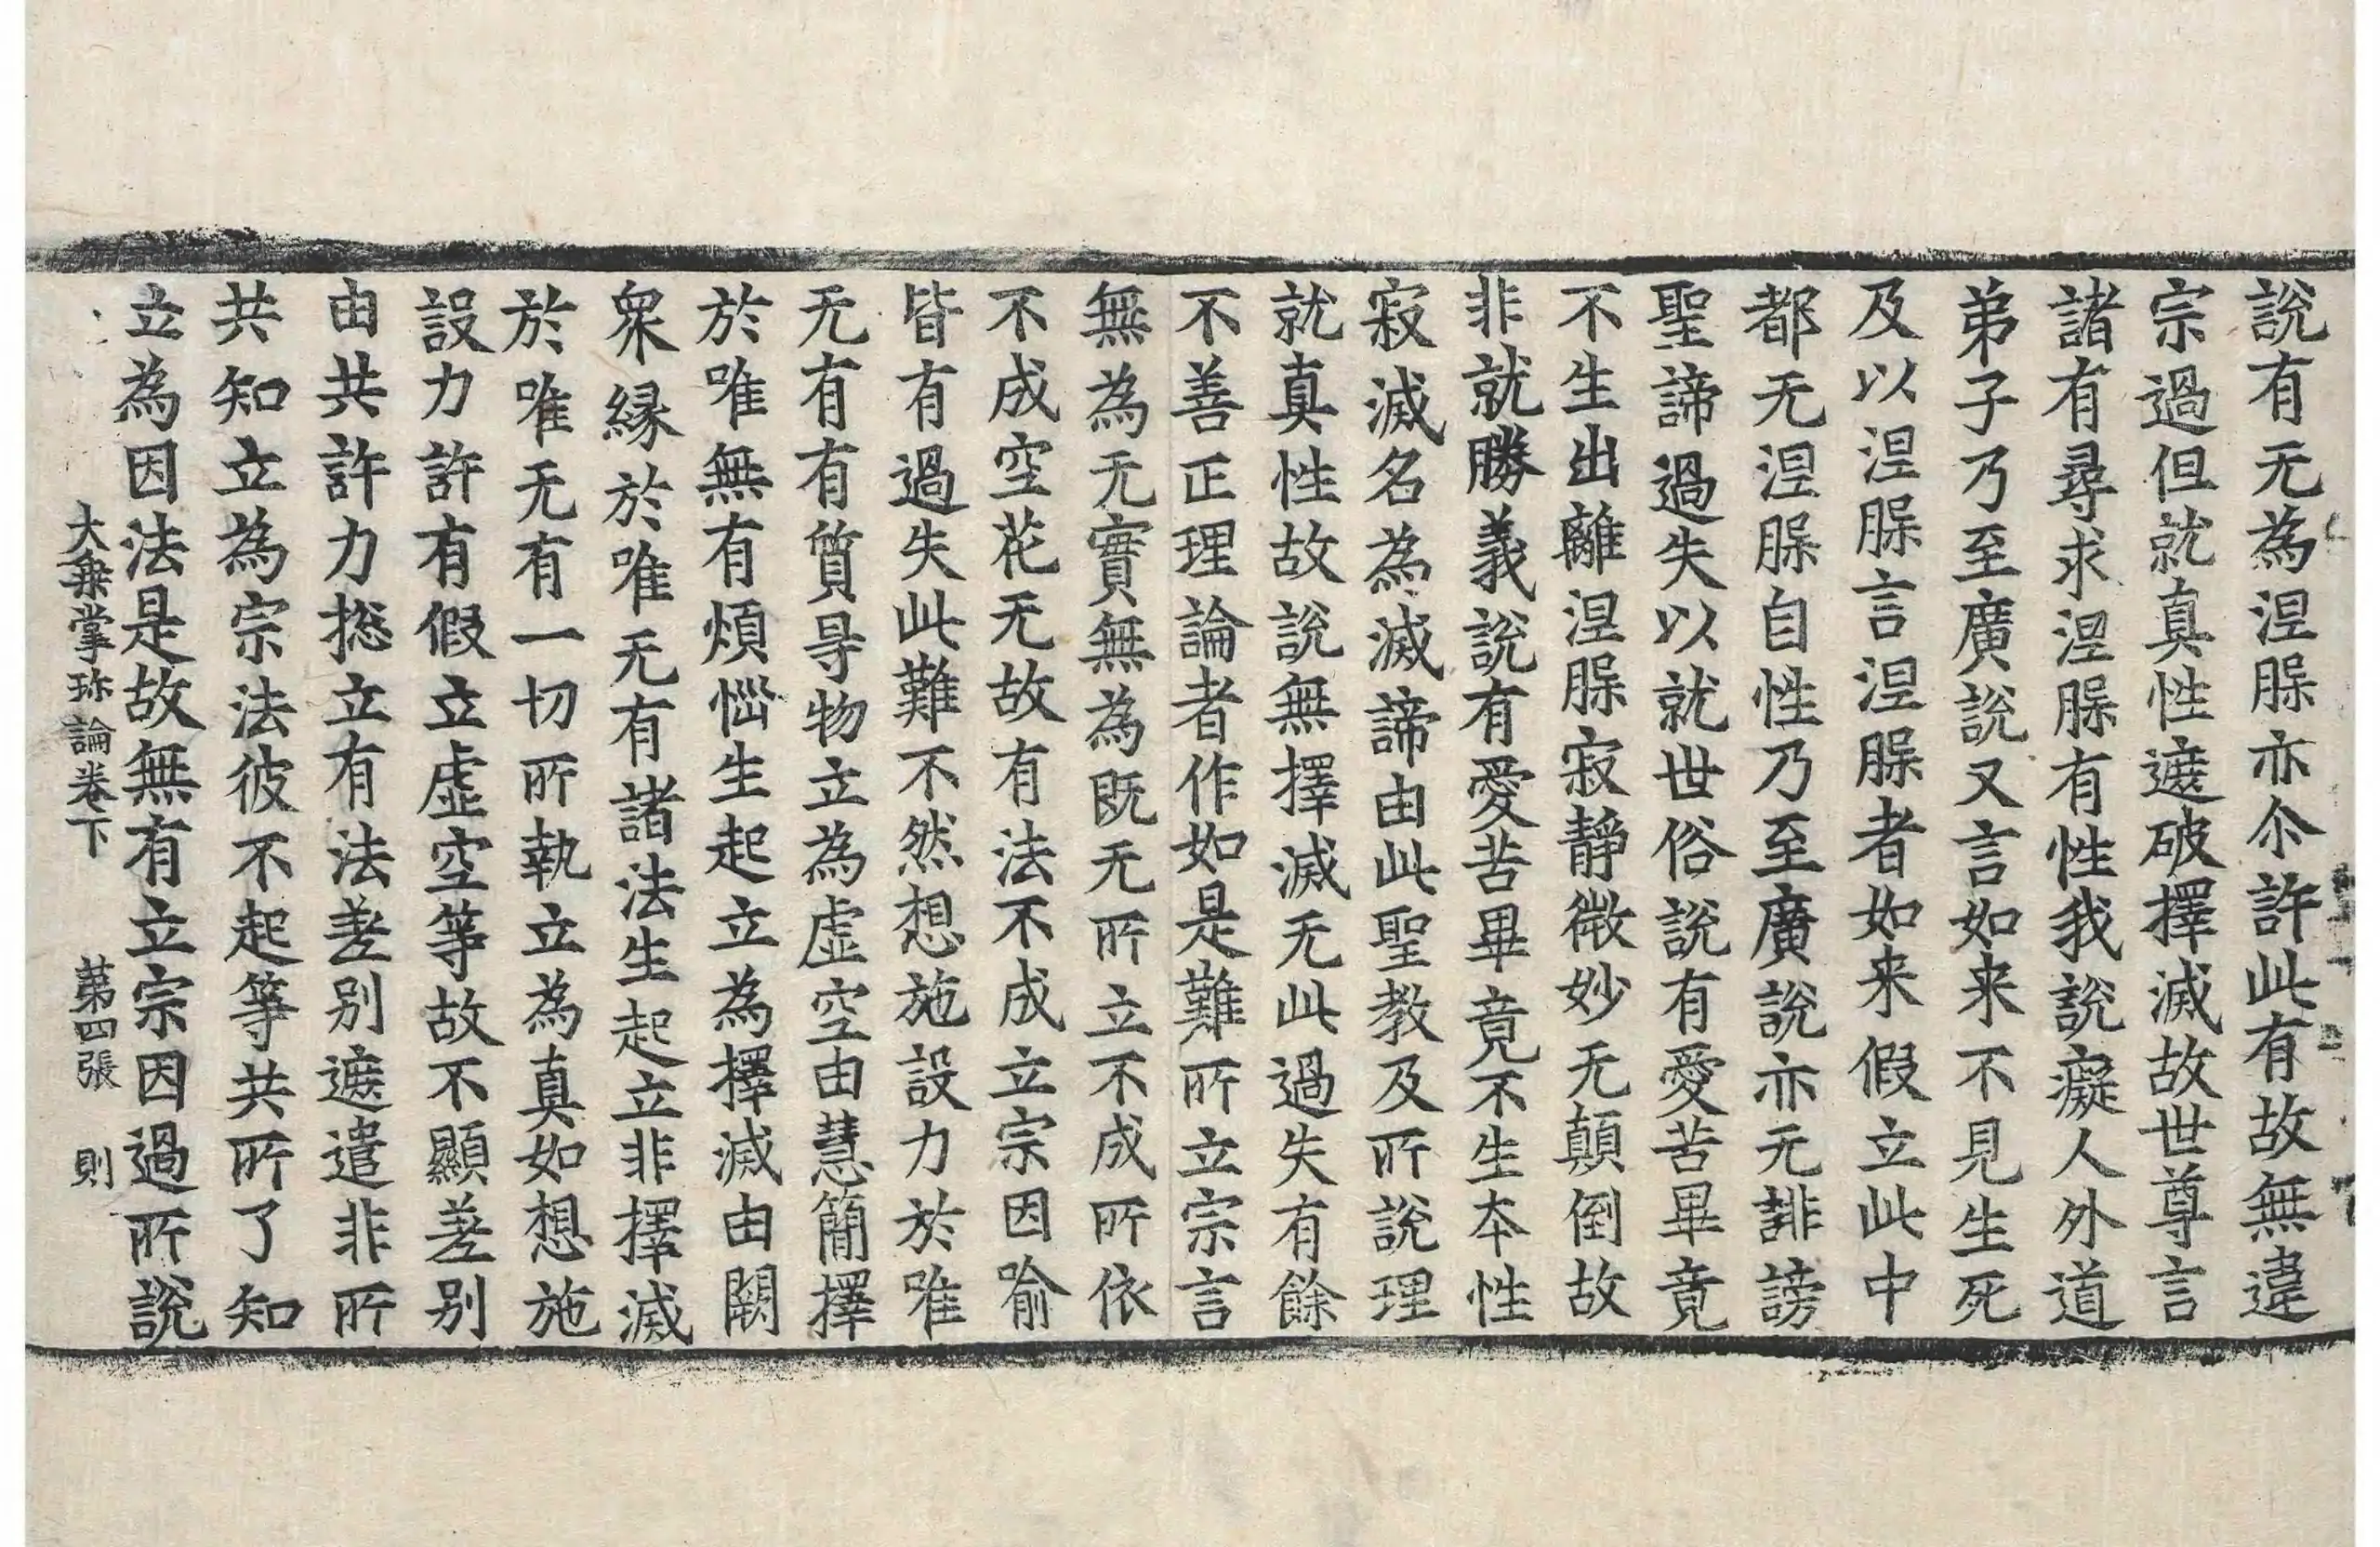 說有无為涅脲亦尒許此有故無違
宗過但就真性遮破擇滅故世尊言
諸有尋求涅脲有性我說癡人外道
弟子乃至廣說又言如来不見生死
及以涅脲言涅脲者如来假立此中
都无涅脲自性乃至廣說亦无誹謗
聖諦過失以就世俗說有愛苦畢竟
不生出離涅脲寂靜微妙无顛倒故
非就勝義說有愛苦畢竟不生夲性
寂滅名為滅諦由此聖教及所說理
就真性故說無擇滅无此過失有餘
不善正理論者作如是難所立宗言
無為无實無為既无所立不成所依
不成空花无故有法不成立宗因喻
皆有過失此難不然想施設力於唯
无有有質㝵物立為虛空由慧簡擇
於唯無有煩惱生起立為擇滅由闕
衆緣於唯无有諸法生起立非擇滅
於唯无有一切所執立為真如想施
設力許有假立虛空等故不顯差别
由共許力捴立有法差别遮遣非所
共知立為宗法彼不起等共所了知
立為因法是故無有立宗因過所說
大乗掌珎論卷下 第四張 則